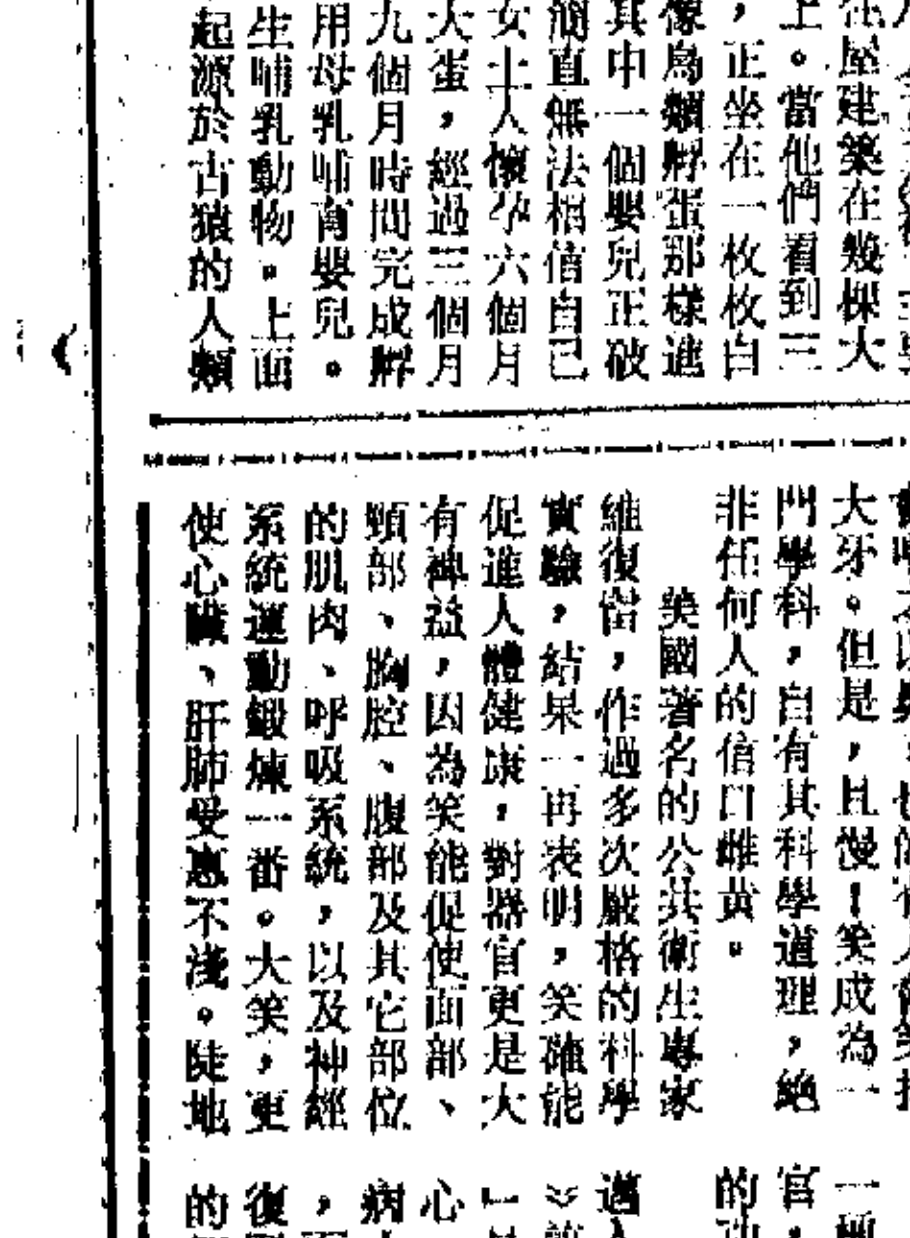 在屋建築在幾棵大
上。當他們看到三
，正坐在一枚枚白
像鳥類孵蛋那樣進
其中一個嬰兒正破
簡直無法相信自己
女士人懷孕六個月
大蛋，經過三個月
九個月時間完成孵
用母乳哺育嬰兒。
生哺乳動物。上面
起源於古猿的人類
大牙。但是，且慢！笑成為一
門學科，自有其科學道理，絶
非任何人的信口雌黄。
美國著名的公共衛生專家
維復留，作過多次嚴格的科學
實驗，結果一再表明，笑確能
促進人體健康，對器官更是大
有裨益，因為笑能促使面部、
頸部、胸腔、腹部及其它部位
的肌肉、呼吸系統，以及神經
系統運動鍛煉一番。大笑，更
使心臟、肝肺受惠不淺。陡地
一種
官，
的功
邁入
心
病
復
的